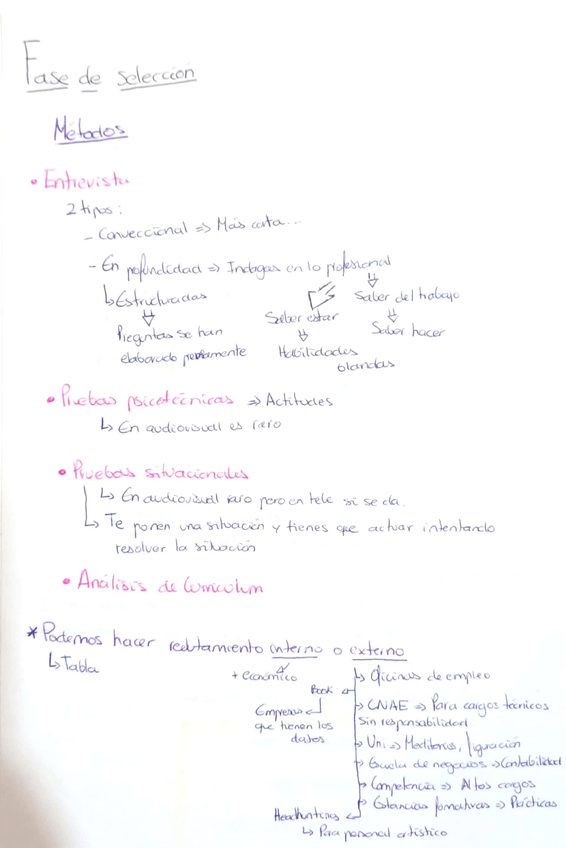 Fase de selección
Métodos
• Entrevista
2 tipos:
- Conveccional => Más corta...
- En profundidad => Indagas en lo profesional
↳ Estructuradas
Saber del trabajo
Saber estar
Saber hacer
Preguntas se han
elaborado previamente
Habilidades
blandas
• Pruebas psicotécnicas => Actitudes
↳ En audiovisual es raro
• Pruebas situacionales
↳ En audiovisual raro pero en tele si se da.
↳ Te ponen una situación y tienes que actuar intentando
resolver la situación
• Análisis de Curriculum
* Podemos hacer reclutamiento interno o externo
↳ Tabla
+ económico
Oficinas de empleo
Book
Empresas
que tienen los
datos
CNAE => Para cargos técnicos
sin responsabilidad
Uni => Meritorios, figuración
Escuela de negocios => Contabilidad
Competencia => Altos cargos
Estancias formativas => Prácticas
Headhuntings
↳ Para personal artístico